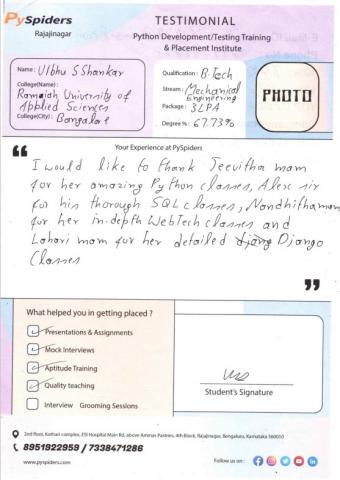 PySpiders
Rajajinagar
TESTIMONIAL
Python Development/Testing Training
& Placement Institute
Name: VIbhu S Shankar
College(Name):
Ramaiah University of
Applied Sciences
College(City): Bangalore
Qualification: B.Tech
Stream: Mechanical
Engineering
Package: 3LPA
Degree %: 67.73%
PHOTO
Your Experience at PySpiders
“
I would like to thank Jeevitha mam
for her amazing Python classes, Alex sir
for his thorough SQL classes, Nandhitha mam
for her in-depth WebTech classes and
Lahari mam for her detailed Django
Classes
”
What helped you in getting placed ?
Presentations & Assignments
Mock Interviews
Aptitude Training
Quality teaching
Interview Grooming Sessions
Student's Signature
2nd floor, Kothari complex, ESI Hospital Main Rd, above Ammas Pastries, 4th Block, Rajajinagar, Bengaluru, Karnataka 560010
8951922959 / 7338471286
www.pyspiders.com
Follow us on: